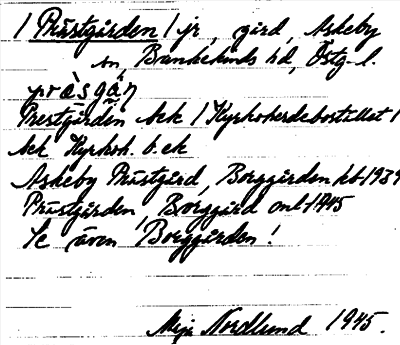 / Prästgården / jr, gård, Askeby
sn, Bankekinds hd, Östg. l.
præ̀sgáṇ
Prestgården Aek / Kyrkoherdebostället /
Aek Kyrkoh. b. ek
Askeby Prästgård, Borggården kb 1939
Prästgården, Borggård ont 1945
Se även Borggården!
Nordlund 1945.